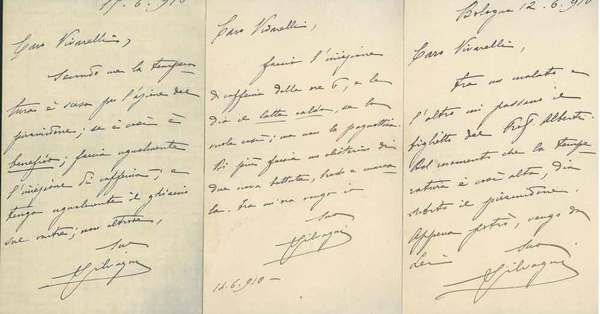 11.6.910
Caro Vivarelli,
Secondo me la tempera
tura è scesa per l'azione del
piramidone; se è così è
benefico; faccia ugualmente
l'iniezione di caffeina, e
tenga ugualmente il ghiaccio
sul ventre; non altro.
Suo
Silvagni
Caro Vivarelli,
faccia l'iniezione
di caffeina delle ore 6, e le
dia il latte caldo, se lo
vuole così; ma non la pagnottina.
Di più faccia un clistere di
due uova sbattute,
la. Fra un'ora vengo io
Suo
Silvagni
12.6.910
Bologna 12.6.910
Caro Vivarelli,
Fra un malato e
l'altro mi passano il
biglietto del Prof Alberti.
Dal momento che la tempe
ratura è così alta, dia
subito il piramidone.
Appena potrò, vengo da
Lei
Suo
Silvagni